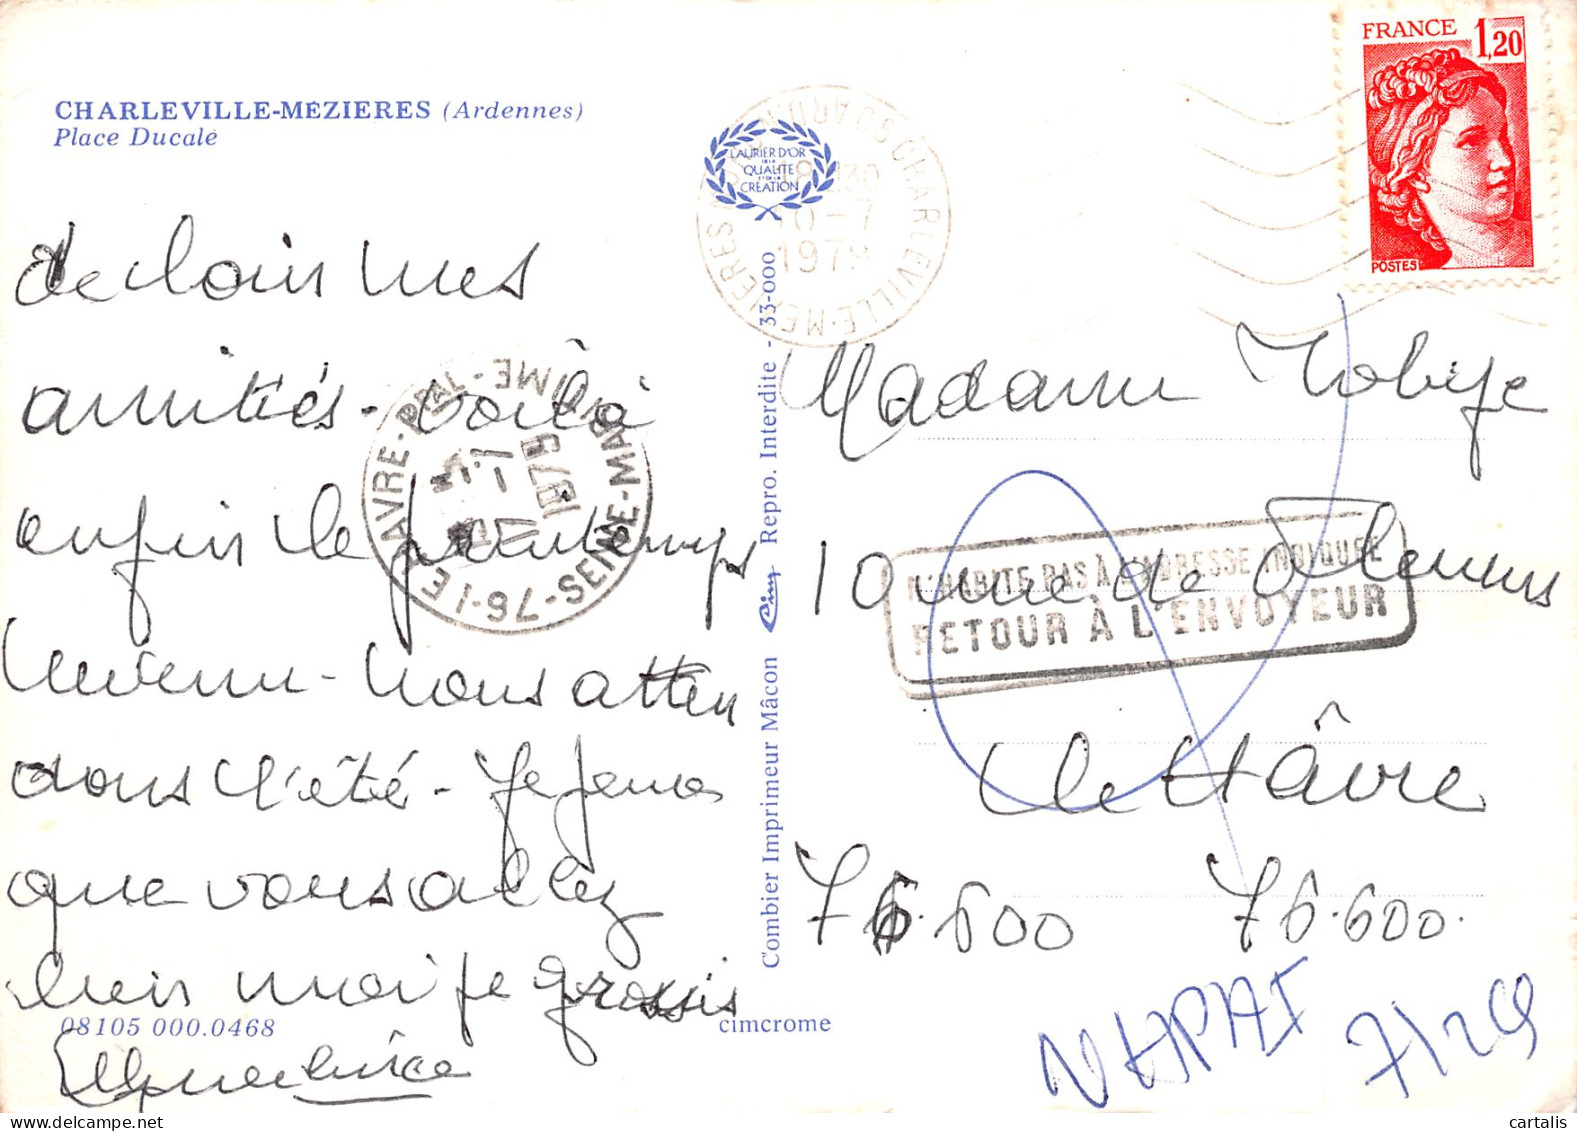 CHARLEVILLE-MÉZIERES (Ardennes)
Place Ducale
de loin mes
amitiés - voilà
enfin le printemps
revenu - nous atten
dons l'été - Je pense
que vous allez
bien moi je grossis
08105 000.0468
cimcrome
Combier Imprimeur Mâcon Cim Repro. Interdite - 33-000
LAURIER D'OR
DE LA
QUALITÉ
ET DE LA
CRÉATION
CHARLEVILLE-MEZIERES
18 30
10-7
1979
76-LE HAVRE-PPAL-SEINE-MARITIME
1979
FRANCE 1,20
POSTES
Madame
10 rue de
N'HABITE PAS À L'ADRESSE INDIQUÉE
RETOUR À L'ENVOYEUR
Le Hâvre
76.600 76.600.
NHPAI
© cartalis